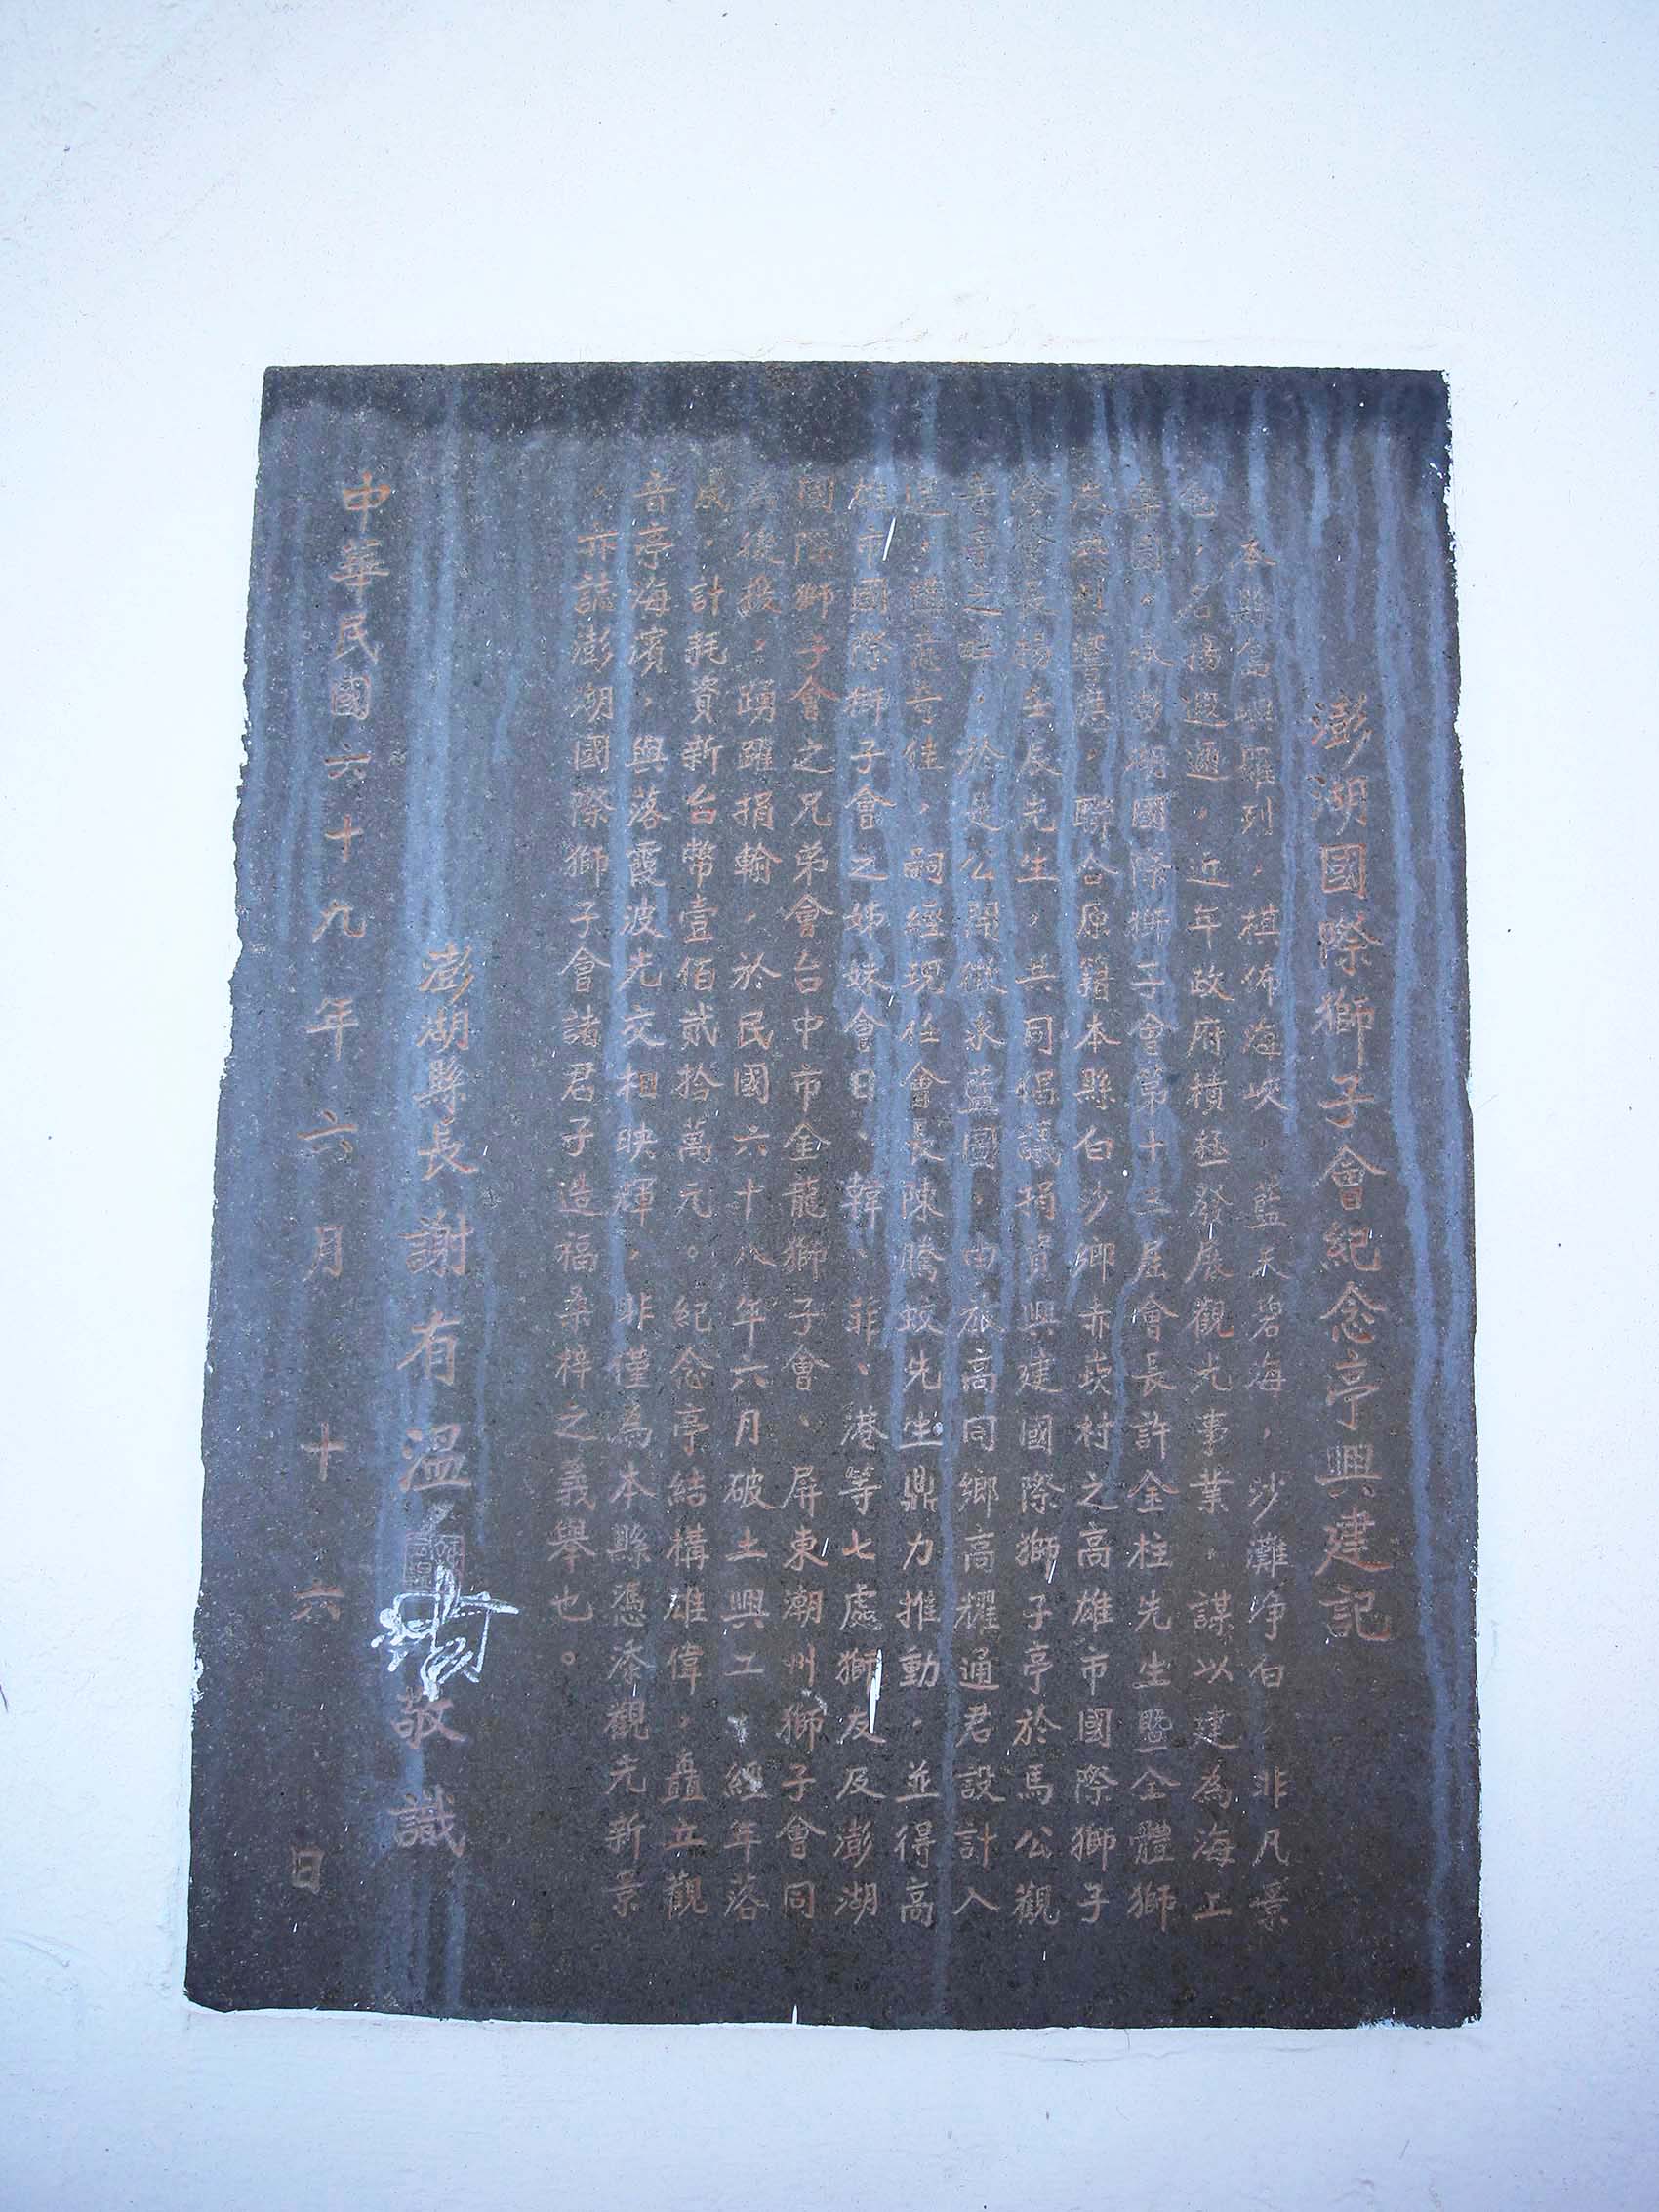 澎湖國際獅子會紀念亭興建記
本縣島嶼羅列，棋佈海峽，藍天碧海，沙灘净白，非凡景
色，名揚遐邇，近年政府積極發展觀光事業，謀以建為海上
公園，承澎湖國際獅子會第十三屆會長許金柱先生暨全體獅
友熱烈響應，聯合原籍本縣白沙鄉赤崁村之高雄市國際獅子
會會長楊壬辰先生，共同倡議捐資興建國際獅子亭於馬公觀
音亭之畔，於是公開徵求藍圖，由旅高同鄉高耀通君設計入
選，蘊意奇佳，嗣經現任會長陳騰蛟先生鼎力推動，並得高
雄市國際獅子會之姊妹會日、韓、菲、港等七處獅友及澎湖
國際獅子會之兄弟會台中市金龍獅子會、屏東潮州獅子會同
為後援，踴躍捐輸，於民國六十八年六月破土興工，經年落
成，計耗資新台幣壹佰貳拾萬元。紀念亭結構雄偉，矗立觀
音亭海濱，與落霞波光交相映輝，非僅為本縣憑添觀光新景
，亦誌澎湖國際獅子會諸君子造福桑梓之義舉也。
澎湖縣長謝有溫敬識
中華民國六十九年六月十六日